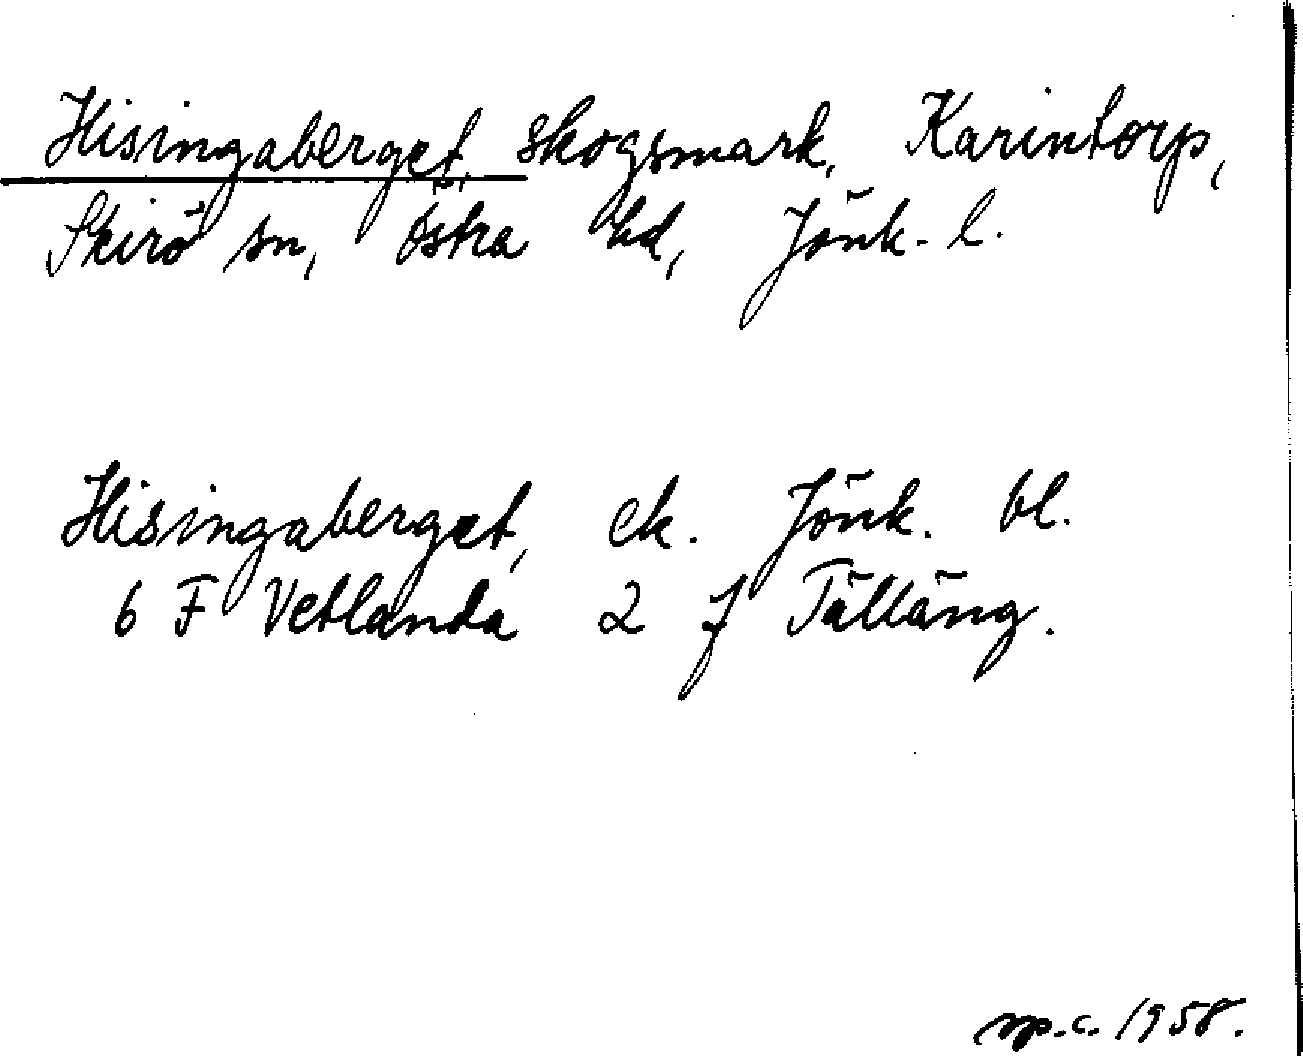 Hisingaberget, skogsmark, Karintorp,
Skirö sn, Östra hd, Jönk. l.
Hisingaberget, ek. Jönk. bl.
6 F Vetlanda 2 j Tälläng.
1958.